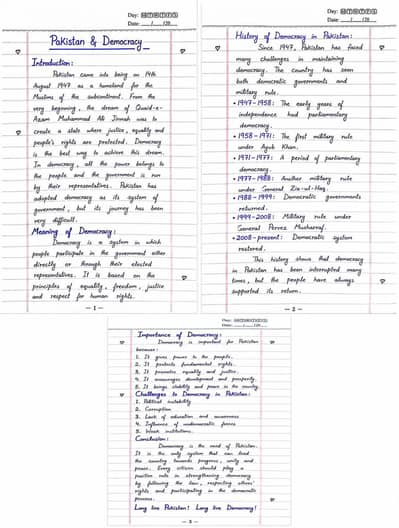 Day: M T W T F S S
Date: __/__/20__
Pakistan & Democracy
Introduction:
Pakistan came into being on 14th
August 1947 as a homeland for the
Muslims of the subcontinent. From the
very beginning, the dream of Quaid-e-
Azam Muhammad Ali Jinnah was to
create a state where justice, equality and
people's rights are protected. Democracy
is the best way to achieve this dream.
In democracy, all the power belongs to
the people and the government is run
by their representatives. Pakistan has
adopted democracy as its system of
government, but its journey has been
very difficult.
Meaning of Democracy:
Democracy is a system in which
people participate in the government either
directly or through their elected
representatives. It is based on the
principles of equality, freedom, justice
and respect for human rights.
— 1 —
Day: M T W T F S S
Date: __/__/20__
History of Democracy in Pakistan:
Since 1947, Pakistan has faced
many challenges in maintaining
democracy. The country has seen
both democratic governments and
military rule.
• 1947-1958: The early years of
independence had parliamentary
democracy.
• 1958-1971: The first military rule
under Ayub Khan.
• 1971-1977: A period of parliamentary
democracy.
• 1977-1988: Another military rule
under General Zia-ul-Haq.
• 1988-1999: Democratic governments
returned.
• 1999-2008: Military rule under
General Pervez Musharraf.
• 2008-present: Democratic system
restored.
This history shows that democracy
in Pakistan has been interrupted many
times, but the people have always
supported its return.
— 2 —
Day: M T W T F S S
Date: __/__/20__
Importance of Democracy:
Democracy is important for Pakistan
because:
1. It gives power to the people.
2. It protects fundamental rights.
3. It promotes equality and justice.
4. It encourages development and prosperity.
5. It brings stability and peace in the country.
Challenges to Democracy in Pakistan:
1. Political instability
2. Corruption
3. Lack of education and awareness
4. Influence of undemocratic forces
5. Weak institutions.
Conclusion:
Democracy is the need of Pakistan.
It is the only system that can lead
the country towards progress, unity and
peace. Every citizen should play a
positive role in strengthening democracy
by following the law, respecting others'
rights and participating in the democratic
process.
Long live Pakistan! Long live Democracy!
— 3 —